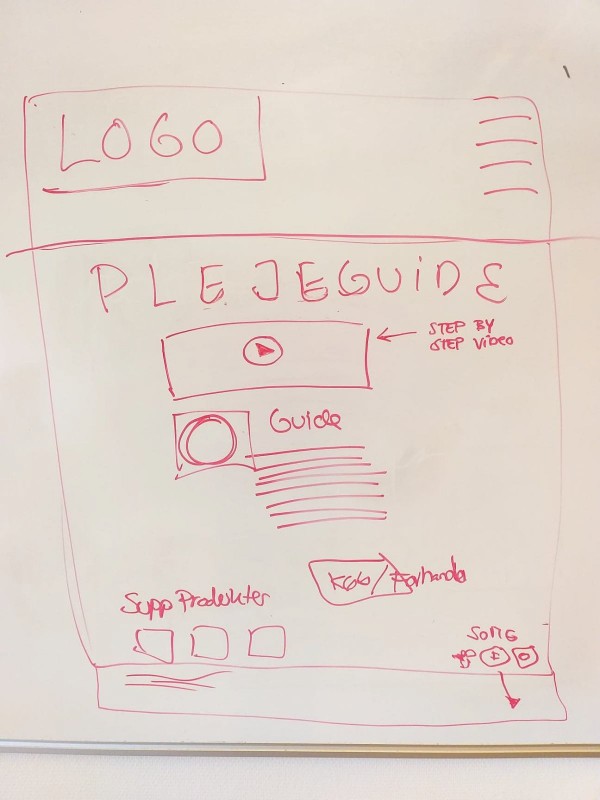 LOGO
PLEJEGUIDE
STEP BY
STEP Video
Guide
Køb/Forhandler
Supp Produkter
SOME